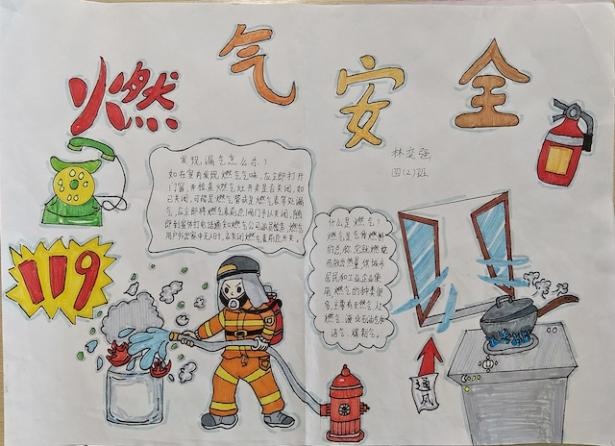 燃气安全
林奕强
四(2)班
发现漏气怎么办?
如在室内发现燃气气味,应立即打开
门窗,并检查燃气灶开关是否关闭,如
已关闭,可能是燃气管或是燃气表等处漏
气,应立即将燃气表前总阀门予以关闭,随
即到室外打电话通知燃气公司派员检查
用户
什么是燃气?
燃气是气体燃料
的总称,它能燃烧
而放出热量,供城市
居民和工业企业使
用。燃气的种类很
多,主要有天然气、人工
燃气、液化石油气和
沼气、煤制气。
119
通风